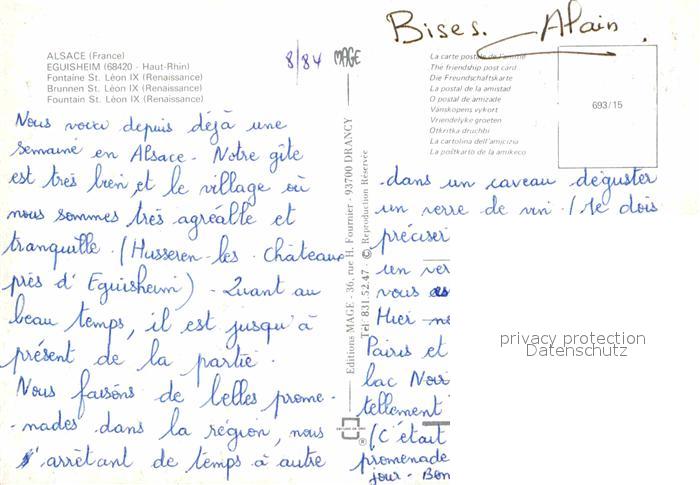 Bises. Alain.
8/84 MAGE
ALSACE (France)
EGUISHEIM (68420 - Haut-Rhin)
Fontaine St. Léon IX (Renaissance)
Brunnen St. Léon IX (Renaissance)
Fountain St. Léon IX (Renaissance)
Nous voici depuis déjà une
semaine en Alsace - Notre gîte
est très bien, et le village où
nous sommes très agréable et
tranquille. (Husseren-les-Châteaux
près d'Eguisheim) - Quant au
beau temps, il est jusqu'à
présent de la partie.
Nous faisons de belles prome-
-nades dans la région, nous
arrêtant de temps à autre
Editions MAGE - 36, rue H. Fournier - 93700 DRANCY
Tél 831.52.47 - © Reproduction Réservée
La carte postale de l'amitié
The friendship post card
Die Freundschaftskarte
La postal de la amistad
O postal de amizade
Vänskapens vykort
Vriendelyke groeten
Otkritka druchbi
La cartolina dell'amicizia
La poŝtkarto de la amikeco
693/15
dans un caveau déguster
un verre de vin. (Je dois
préciser
un ver
vous
Hier
Pairis et
lac Noir
tellement
(C'était
promenade
jour - Bon
privacy protection
Datenschutz